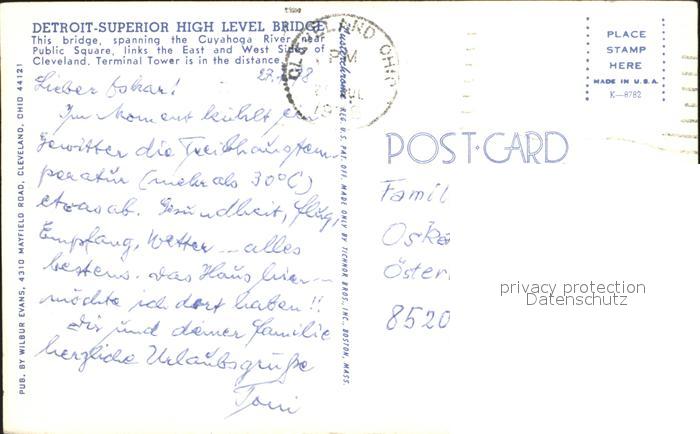 DETROIT-SUPERIOR HIGH LEVEL BRIDGE
This bridge, spanning the Cuyahoga River near
Public Square, links the East and West Sides of
Cleveland. Terminal Tower is in the distance.
Lieber Oskar!
Im Moment kühlt ein
Gewitter die Treibhaustem-
peratur (mehr als 30°C)
etwas ab. Gesundheit, Flug,
Empfang, Wetter - alles
bestens. Das Haus hier -
möchte ich dort haben!!
Dir und deiner Familie
herzliche Urlaubsgrüße
Toni
PUB. BY WILBUR EVANS, 4310 MAYFIELD ROAD, CLEVELAND, OHIO 44121
REG. U.S. PAT. OFF. MADE ONLY BY TICHNOR BROS., INC., BOSTON, MASS.
CLEVELAND OHIO
PM
PLACE
STAMP
HERE
MADE IN U.S.A.
K-8782
POST-CARD
Famil
Oska
Öster
8520
privacy protection
Datenschutz